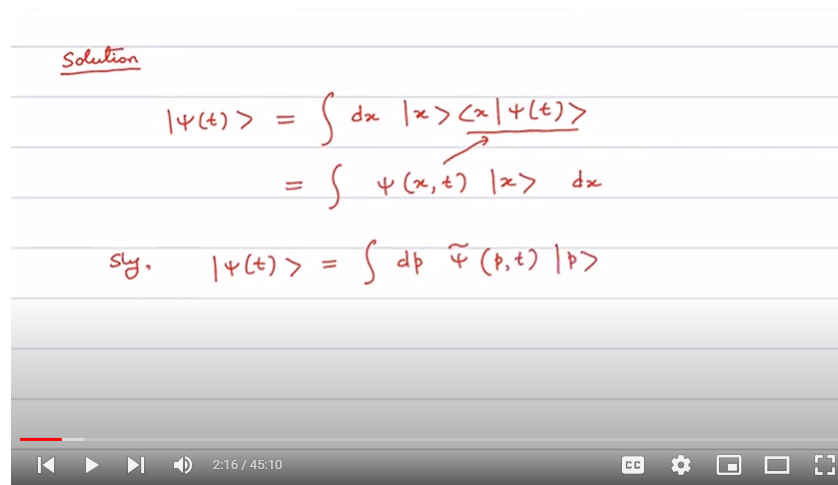 Solution
|ψ(t)> = ∫ dx |x> <x|ψ(t)>
= ∫ ψ(x,t) |x> dx
Sly, |ψ(t)> = ∫ dp ψ̃(p,t) |p>
2:16 / 45:10 CC